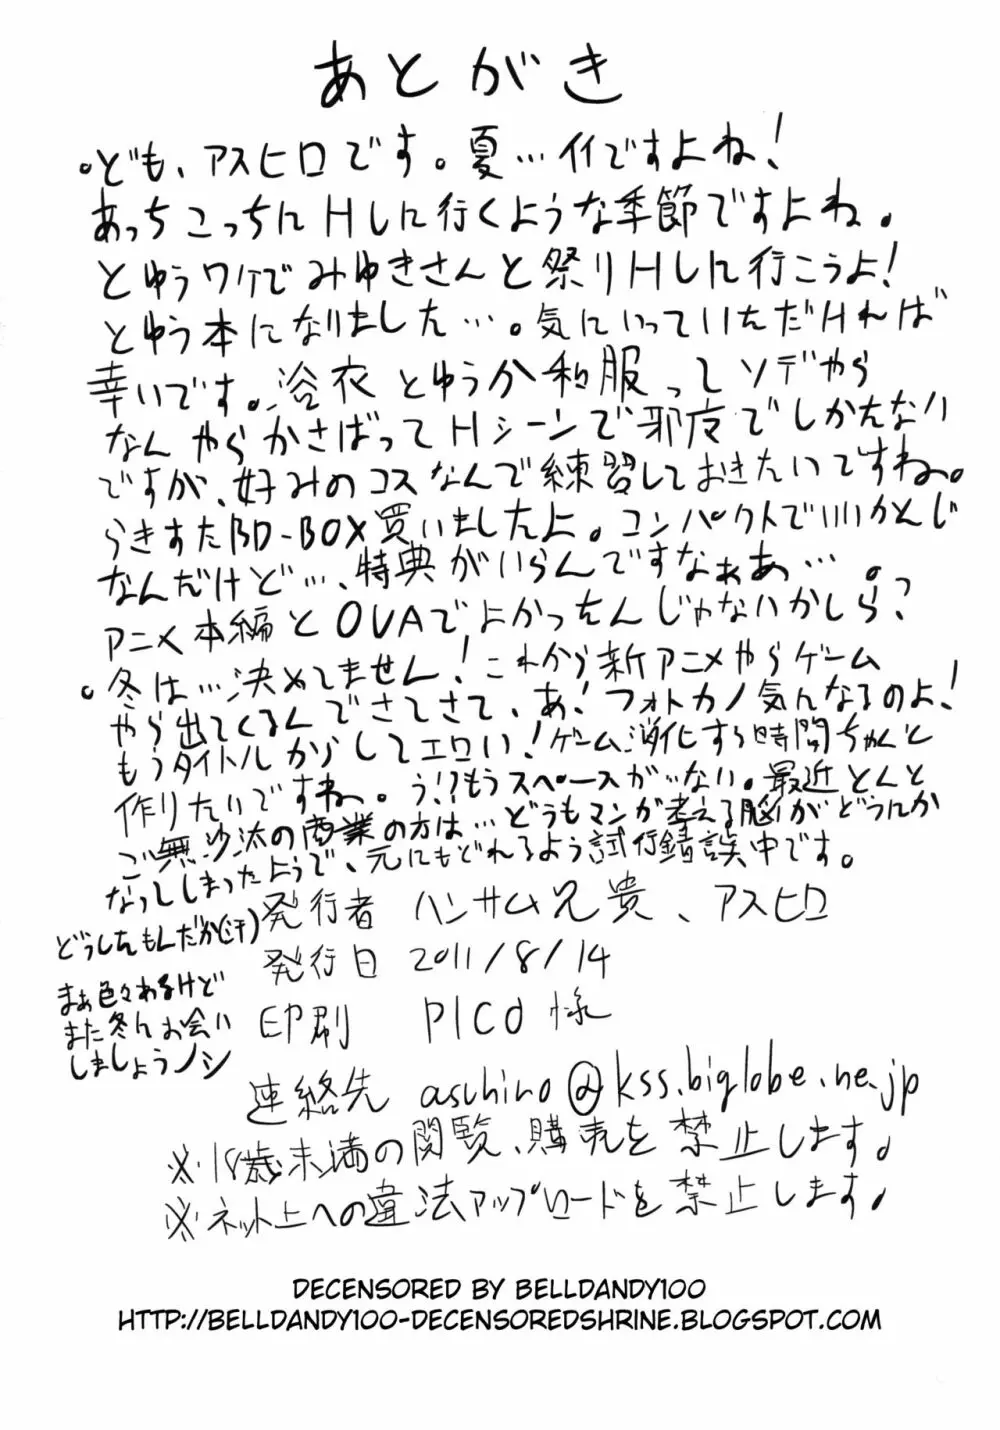 あとがき
。ども、アスヒロです。夏…イイですよね!
あっちこっちにHしに行くような季節ですよね。
とゆうワケでみゆきさんと祭りHしに行こうよ!
とゆう本になりました…。気にいっていただければ
幸いです。浴衣とゆうか和服ってソデやら
なんやらかさばってHシーンで邪魔でしかたない
ですが、好みのコスなんで練習しておきたいですね。
らきすたBD-BOX買いましたよ。コンパクトでいいかんじ
なんだけど…、特典がいらんですなぁあ…。
アニメ本編とOVAでよかったんじゃないかしら?
。冬は…決めてません!これから新アニメやらゲーム
やら出てくるんでさてさて、あ!フォトカノ気になるのよ!
もうタイトルからしてエロい!ゲーム消化する時間ちゃんと
作りたいですね。う!?もうスペースがない。最近とんと
ご無沙汰の商業の方は…どうもマンガ考える脳がどうにか
なってしまったようで、元にもどれるよう試行錯誤中です。
どうしたもんだか(汗)
まぁ色々あるけど
また冬にお会い
しましょうノシ
発行者 ハンサム兄貴、アスヒロ
発行日 2011/8/14
印刷 PICO様
連絡先 aschiro@kss.biglobe.ne.jp
※18歳未満の閲覧、購売を禁止します。
※ネット上への違法アップロードを禁止します。
DECENSORED BY BELLDANDY100
HTTP://BELLDANDY100-DECENSOREDSHRINE.BLOGSPOT.COM